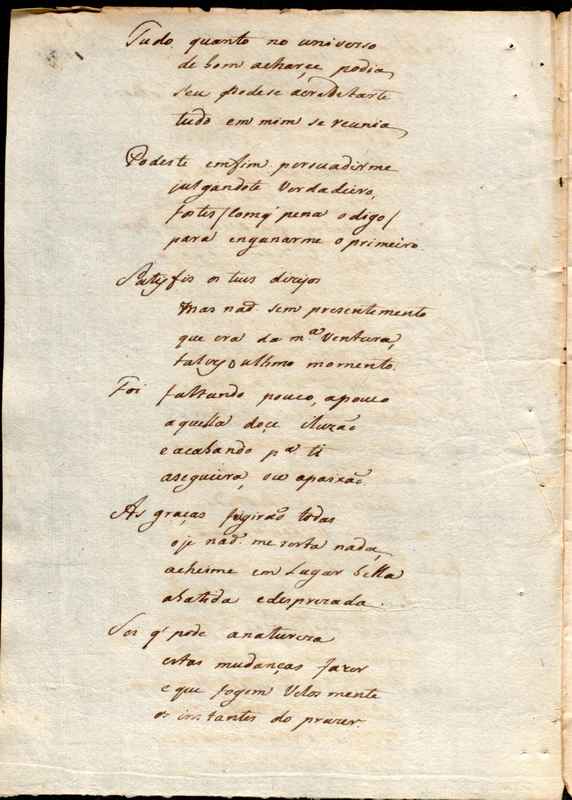 Tudo quanto no universo
de bom acharçe podia,
seu podese acreditarte
tudo em mim se reunia,
Podeste emfim persuadirme
julgandote Verdadeiro,
fostes / Comq' pena o digo /
para enganarme o primeiro.
Satisfis os teus dezejos
mas nad. sem presentemento
que era da mª Ventura,
talves o ultimo momento.
Foi faltando pouco, apouco
aquella doçe iluzaõ
e acabando pª ti
asegueira, ou apaixaõ.
As graças fugiraõ todas
oje nad. me resta nada,
acheime em Lugar bella
abatida edesprezada.
Sei q' pode anatureza
estas mudanças fazer
e que fogem Velos mente
os instantes do prazer.